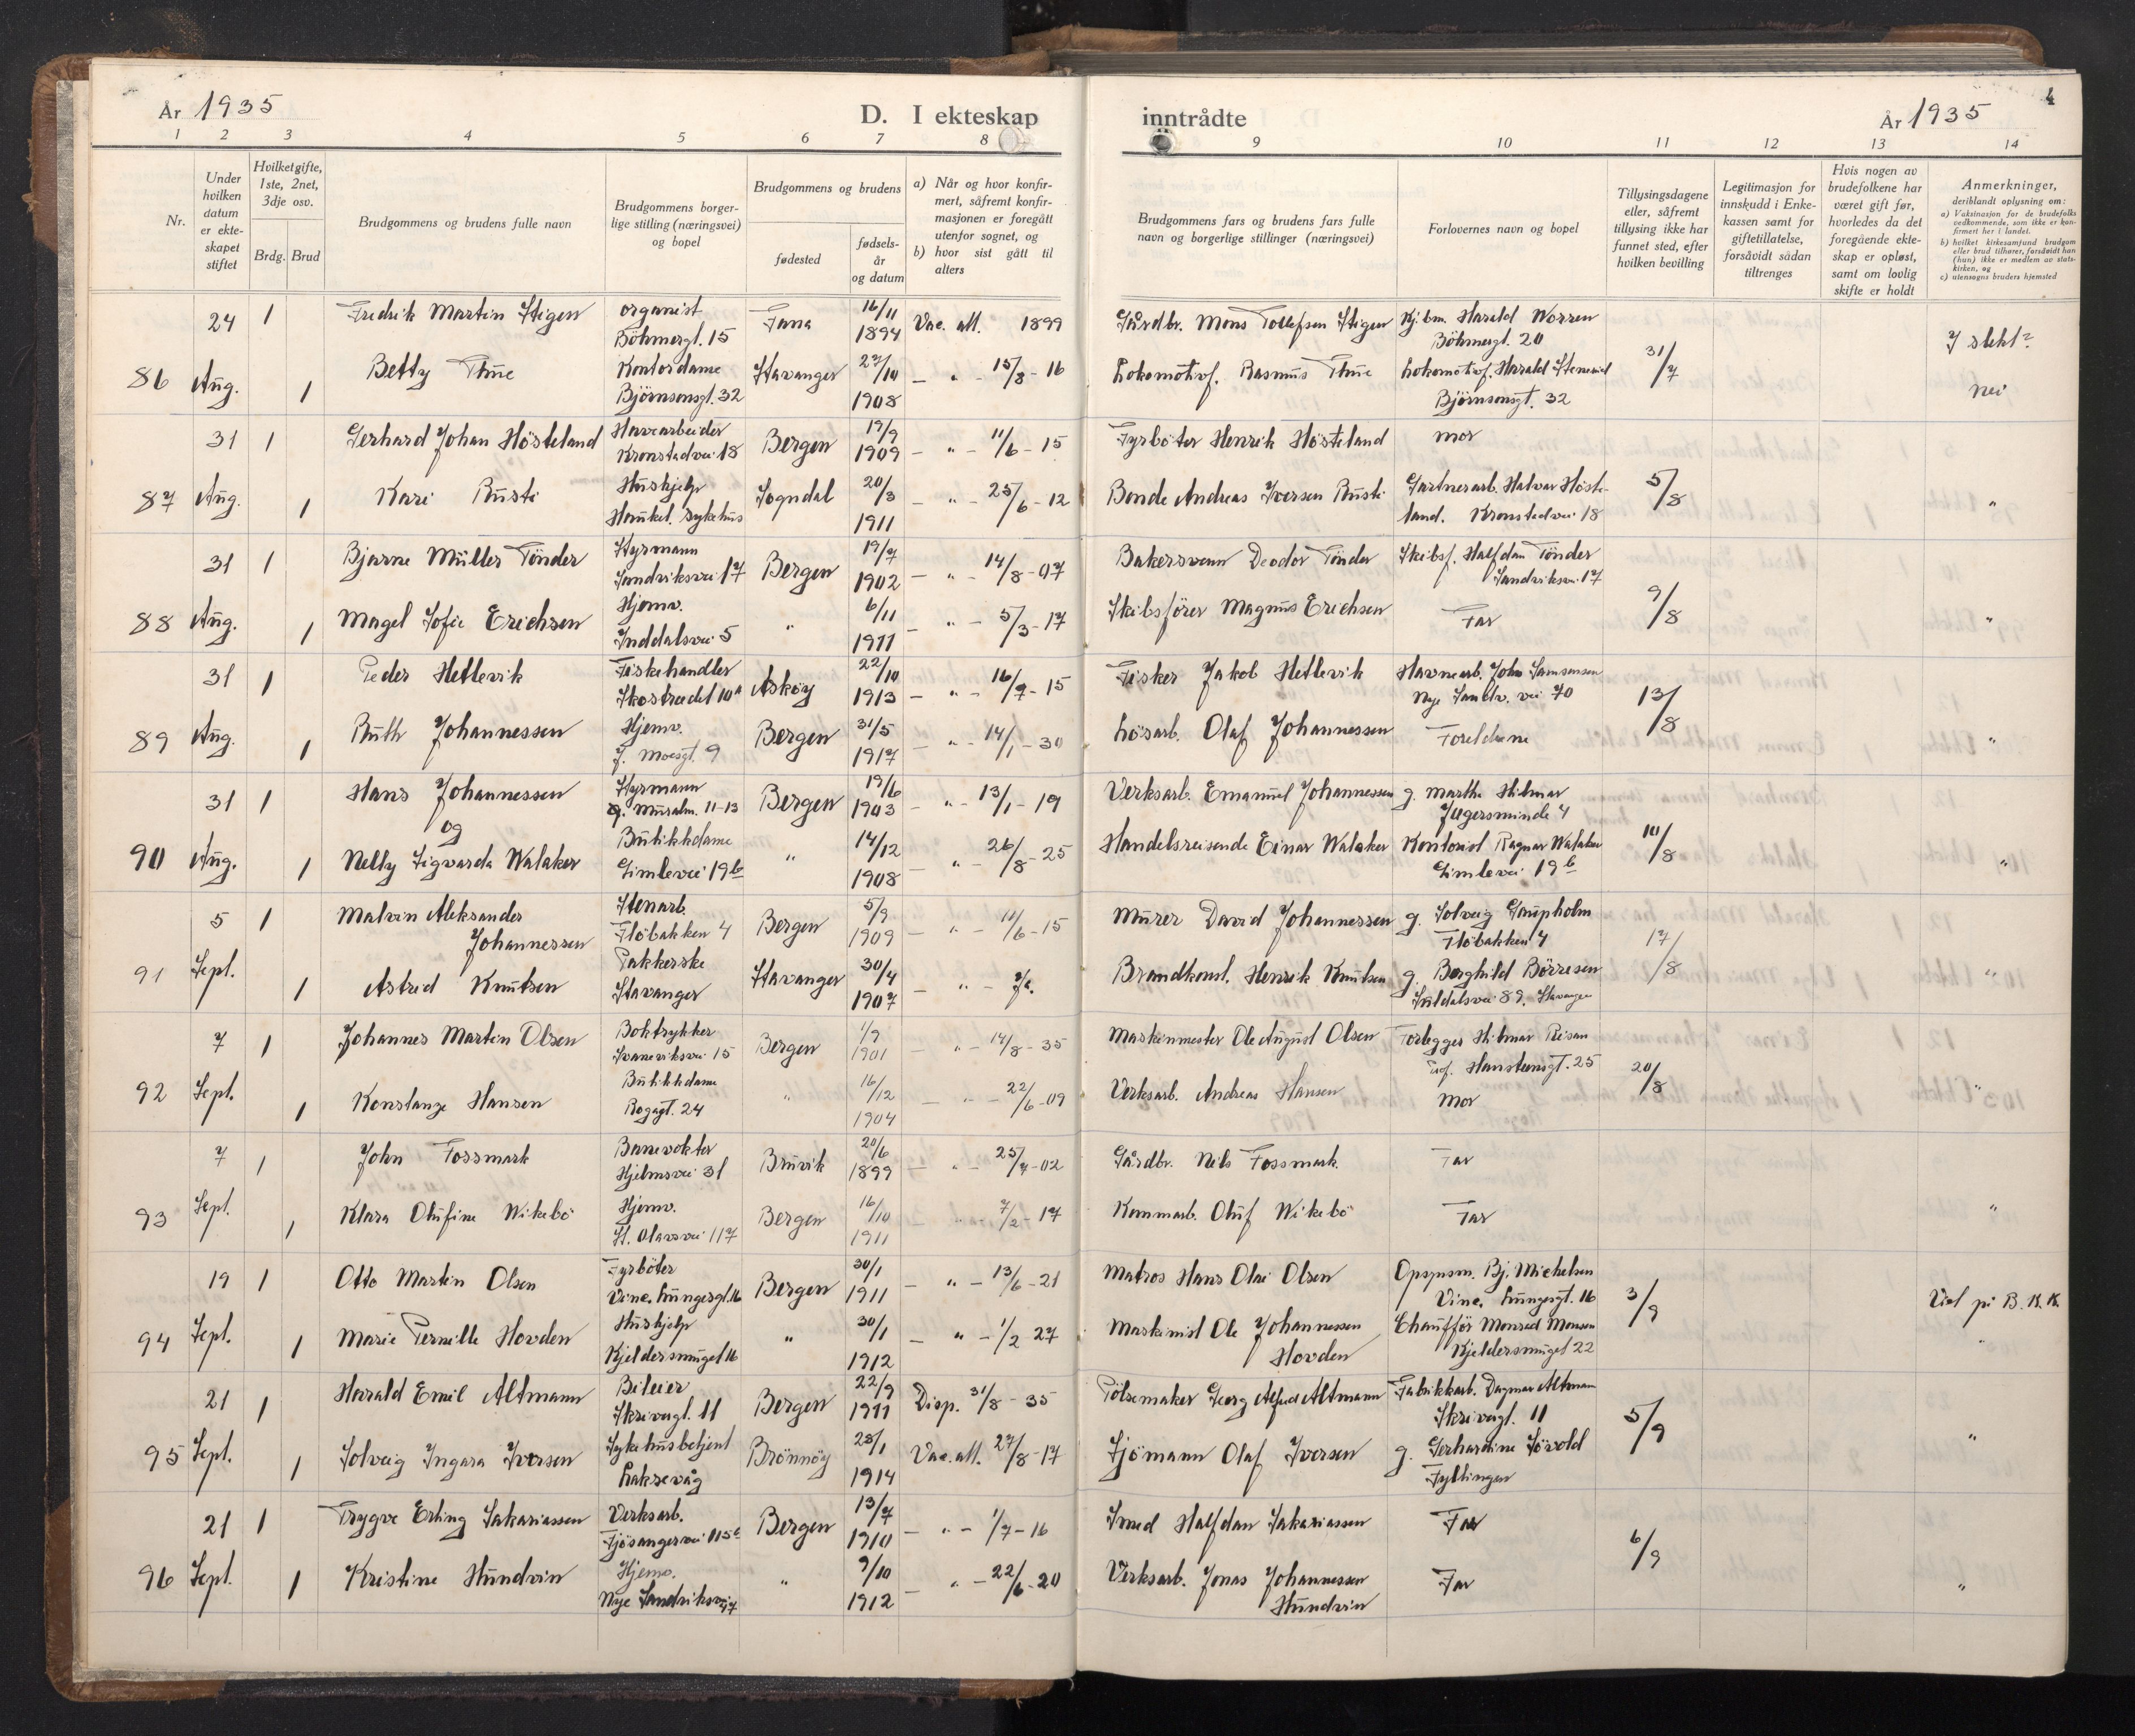 År 1935
D. I ekteskap
inntrådte
År 1935
4
1 2 3 4 5 6 7 8 9 10 11 12 13 14
Nr.
Under hvilken datum er ekteskapet stiftet
Hvilket gifte, 1ste, 2net, 3dje osv.
Brdg. Brud
Brudgommens og brudens fulle navn
Brudgommens borgerlige stilling (næringsvei) og bopel
Brudgommens og brudens
fødested
fødselsår og datum
a) Når og hvor konfirmert, såfremt konfirmasjonen er foregått utenfor sognet, og
b) hvor sist gått til alters
Brudgommens fars og brudens fars fulle navn og borgerlige stillinger (næringsvei)
Forlovernes navn og bopel
Tillysingsdagene eller, såfremt tillysing ikke har funnet sted, efter hvilken bevilling
Legitimasjon for innskudd i Enkekassen samt for giftetillatelse, forsåvidt sådan tiltrenges
Hvis nogen av brudefolkene har været gift før, hvorledes da det foregående ekteskap er opløst, samt om lovlig skifte er holdt
Anmerkninger, deriblandt oplysning om:
a) Vaksinasjon for de brudefolks vedkommende, som ikke er konfirmert her i landet.
b) hvilket kirkesamfund brudgom eller brud tilhører, forsåvidt han (hun) ikke er medlem av statskirken, og
c) utensogns bruders hjemsted
24 1 Fredrik Martin Stigen organist Böhmergt. 15 Fana 16/11 1894 Vac. att. 1899 Gårdbr. Mons Tollefsen Stigen Kjbm. Harald Worren Böhmergt. 20 I slekt?
86 Aug. 1 Betty Thue Kontordame Bjørnsonsgt. 32 Stavanger 27/10 1908 - " - 15/8 - 16 Lokomotivf. Rasmus Thue Lokomotivf. Harald Bjørnsonsgt. 32 31/7 nei
31 1 Gerhard Johan Hösteland Havearbeider Kronstadvei 18 Bergen 19/9 1909 - " - 11/6 - 15 Fyrböter Henrik Hösteland mor
87 Aug. 1 Kari Rusti Hushjelp Haukel. sykehus Sogndal 20/3 1911 - " - 25/6 - 12 Bonde Andreas Iversen Rusti Gartnerarb. Halvar Hösteland. Kronstadvei 18 5/8 "
31 1 Bjarne Müller Tönder Styrmann Sandviksvei 17 Bergen 19/7 1902 - " - 14/8 - 07 Bakersvenn Deodor Tönder Skibsf. Halfdan Tönder Sandviksv. 17
88 Aug. 1 Magel Sofie Erichsen Hjemv. Inddalsvei 5 " 6/11 1911 - " - 5/3 - 17 Skibsfører Magnus Erichsen Far 9/8 "
31 1 Peder Hetlevik Fiskehandler Skostredet 10a Askøy 22/10 1913 - " - 16/7 - 15 Fisker Jakob Hetlevik Havnearb. John Samsonsen Nye Sandv. vei 70
89 Aug. 1 Ruth Johannessen Hjemv. J. Moesgt. 9 Bergen 31/5 1917 - " - 14/1 - 30 Løsarb. Olaf Johannessen Foreldrene 13/8 "
31 1 Hans Johannessen Styrmann 11-13 Bergen 19/6 1903 - " - 13/1 - 19 Verksarb. Emanuel Johannessen g. Martha Hilmar Jægersminde 4
og
90 Aug. 1 Nelly Sigvarda Walaker Butikkdame Gimlevei 19b " 14/12 1908 - " - 26/8 - 25 Handelsreisende Einar Walaker Kontorist Ragnar Walaker Gimlevei 19b 10/8 "
5 1 Malvin Aleksander Johannessen Stenarb. Fløbakken 4 Bergen 5/9 1909 - " - 11/6 - 15 Murer David Johannessen g. Solveig Gaupholm Fløbakken 4
91 Sept. 1 Astrid Knutsen Pakkerske Stavanger Stavanger 30/4 1907 - " - Ja. Brandkonst. Henrik Knutsen g. Borghild Börresen Suldalsvei 89. Stavanger 17/8 "
7 1 Johannes Martin Olsen Boktrykker Svaneviksvei 15 Bergen 1/9 1901 - " - 14/8 - 35 Maskinmester Ole August Olsen Hilmar Prof. Hansteensgt. 25
92 Sept. 1 Konstanze Hansen Butikkdame Rogagt. 24 " 16/12 1904 - " - 22/6 - 09 Verksarb. Andreas Hansen mor 20/8 "
7 1 John Fossmark Banevokter Hjelmsvei 31 Bruvik 20/6 1899 - " - 25/4 - 02 Gårdbr. Nils Fossmark. Far
93 Sept. 1 Klara Olufine Wikebö Hjemv. St. Olavsvei 117 Bergen 16/10 1911 - " - 7/2 - 17 Kommarb. Oluf Wikebö Far "
19 1 Otto Martin Olsen Fyrböter Vinc. Lungesgt. 16 Bergen 30/1 1911 - " - 13/6 - 21 Matros Hans Olai Olsen Opsynsm. Bj. Michelsen Vinc. Lungesgt. 16 3/9 Viet på B. K. K.
94 Sept. 1 Marie Pernille Hovden Hushjelp Kjeldersmuget 16 " 30/1 1912 - " - 1/2 - 27 Maskinist Ole Johannessen Hovden Chauffør Monrad Monsen Kjeldersmuget 22 "
21 1 Harald Emil Altmann Bileier Skrivergt. 11 Bergen 22/9 1911 Disp. 31/8 - 35 Pölsemaker Georg Alfred Altmann Fabrikkarb. Dagmar Altmann Skrivergt. 11
95 Sept. 1 Solveig Ingara Iversen Sykehusbetjent Laksevåg Brönnöy 28/1 1914 Vac. att. 27/8 - 17 Sjömann Olaf Iversen g. Gerhardine Sövold Fyllingen 5/9 "
21 1 Trygve Erling Sakariassen Verksarb. Fjösangervei 115c Bergen 13/7 1910 - " - 1/7 - 16 Smed Halfdan Sakariassen Far
96 Sept. 1 Kristine Hundvin Hjemv. Nye Sandviksvei 47 " 9/10 1912 - " - 22/6 - 20 Verksarb. Jonas Johannessen Hundvin Far 6/9 "